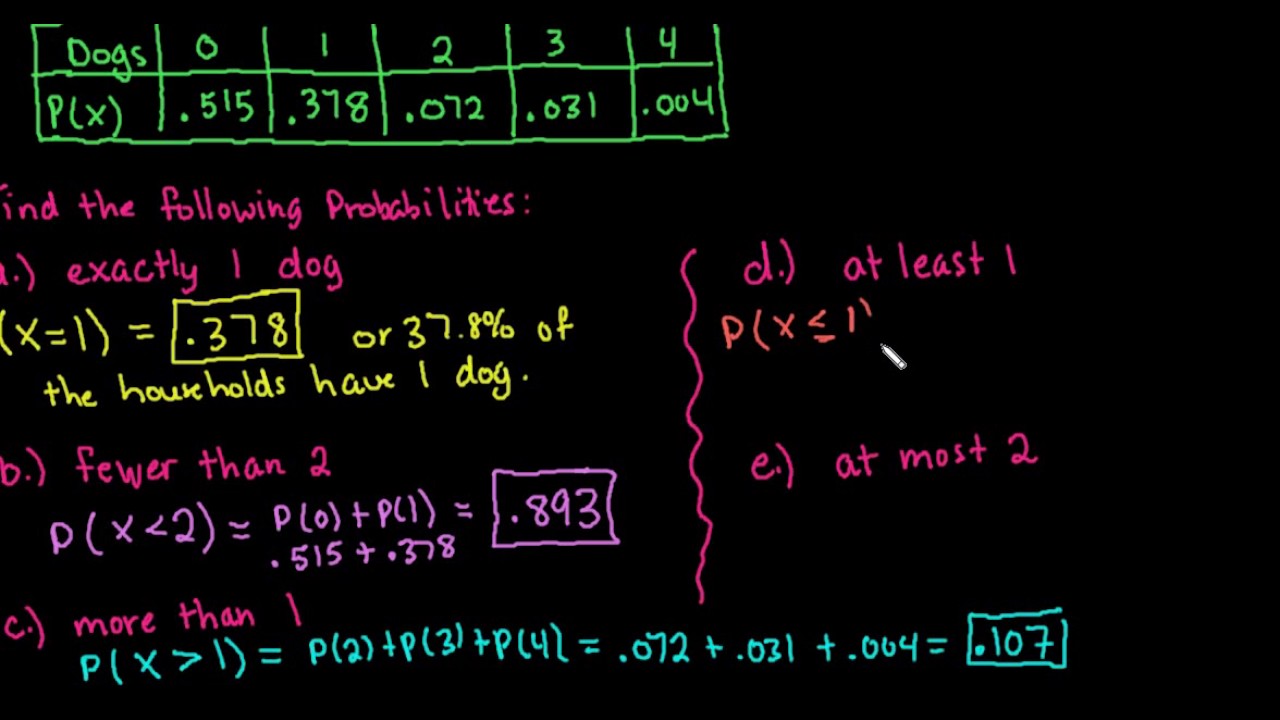 Dogs 0 1 2 3 4
P(x) .515 .378 .072 .031 .004
ind the following Probabilities:
a.) exactly 1 dog
(x=1) = .378 or 37.8% of
the households have 1 dog.
b.) fewer than 2
P(x<2) = P(0)+P(1) = .893
.515 + .378
c.) more than 1
P(x>1) = P(2)+P(3)+P(4) = .072 + .031 + .004 = .107
d.) at least 1
P(x≤1)
e.) at most 2